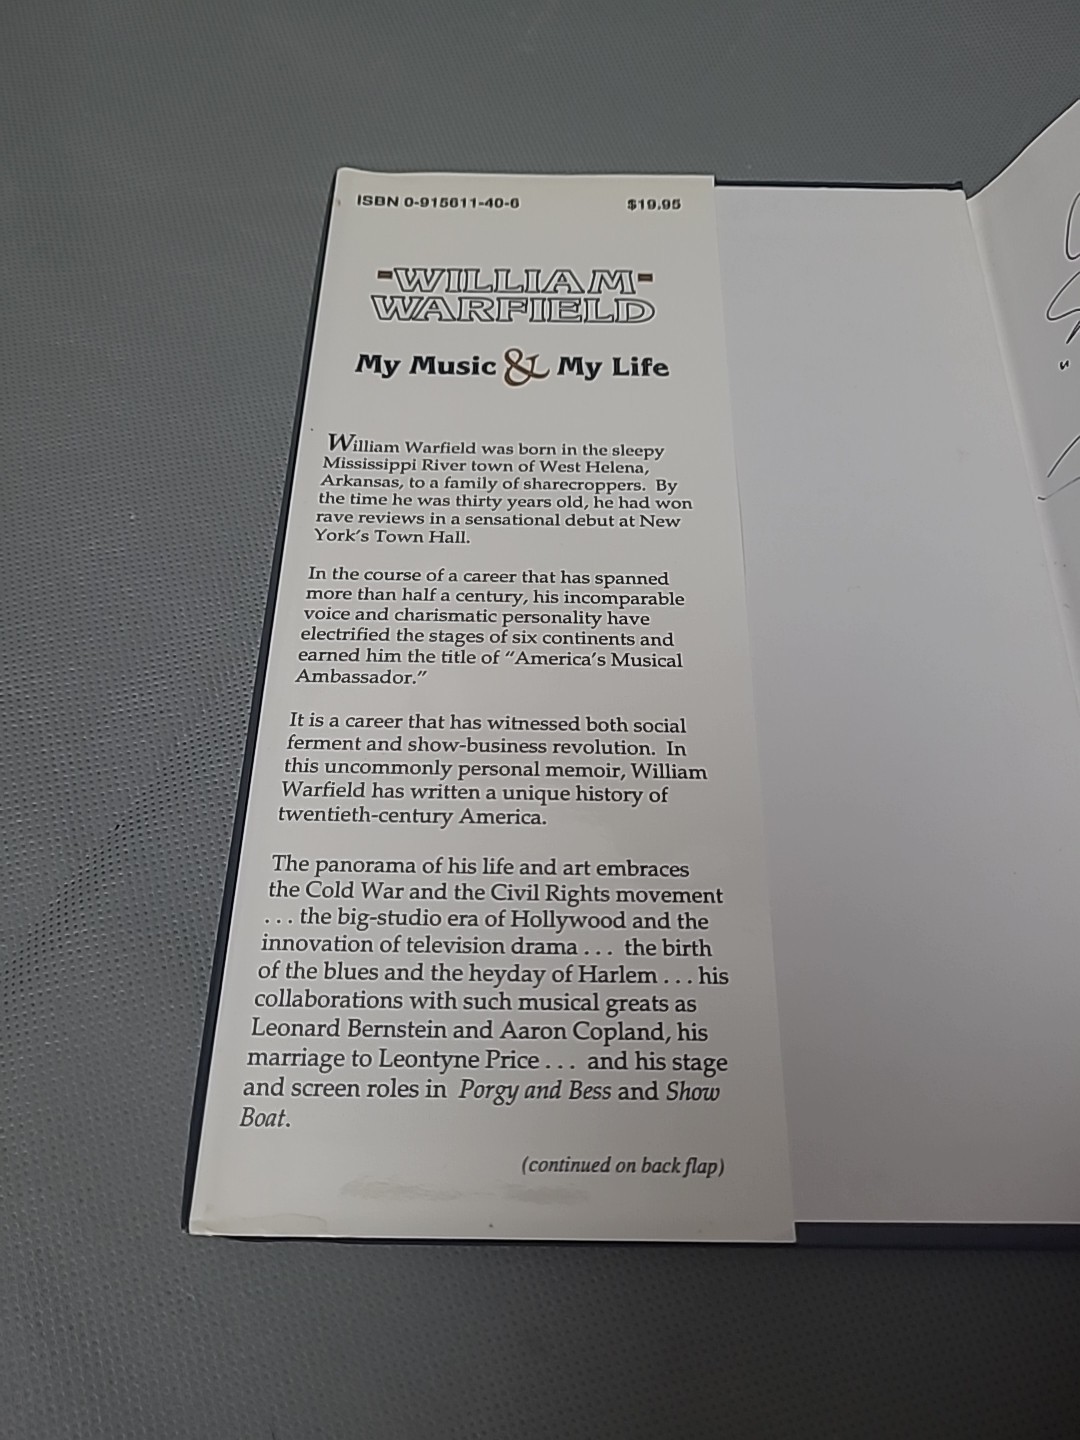 ISBN 0-915611-40-6 $19.95
WILLIAM
WARFIELD
My Music & My Life
William Warfield was born in the sleepy
Mississippi River town of West Helena,
Arkansas, to a family of sharecroppers. By
the time he was thirty years old, he had won
rave reviews in a sensational debut at New
York's Town Hall.
In the course of a career that has spanned
more than half a century, his incomparable
voice and charismatic personality have
electrified the stages of six continents and
earned him the title of "America's Musical
Ambassador."
It is a career that has witnessed both social
ferment and show-business revolution. In
this uncommonly personal memoir, William
Warfield has written a unique history of
twentieth-century America.
The panorama of his life and art embraces
the Cold War and the Civil Rights movement
. . . the big-studio era of Hollywood and the
innovation of television drama . . . the birth
of the blues and the heyday of Harlem . . . his
collaborations with such musical greats as
Leonard Bernstein and Aaron Copland, his
marriage to Leontyne Price . . . and his stage
and screen roles in Porgy and Bess and Show
Boat.
(continued on back flap)